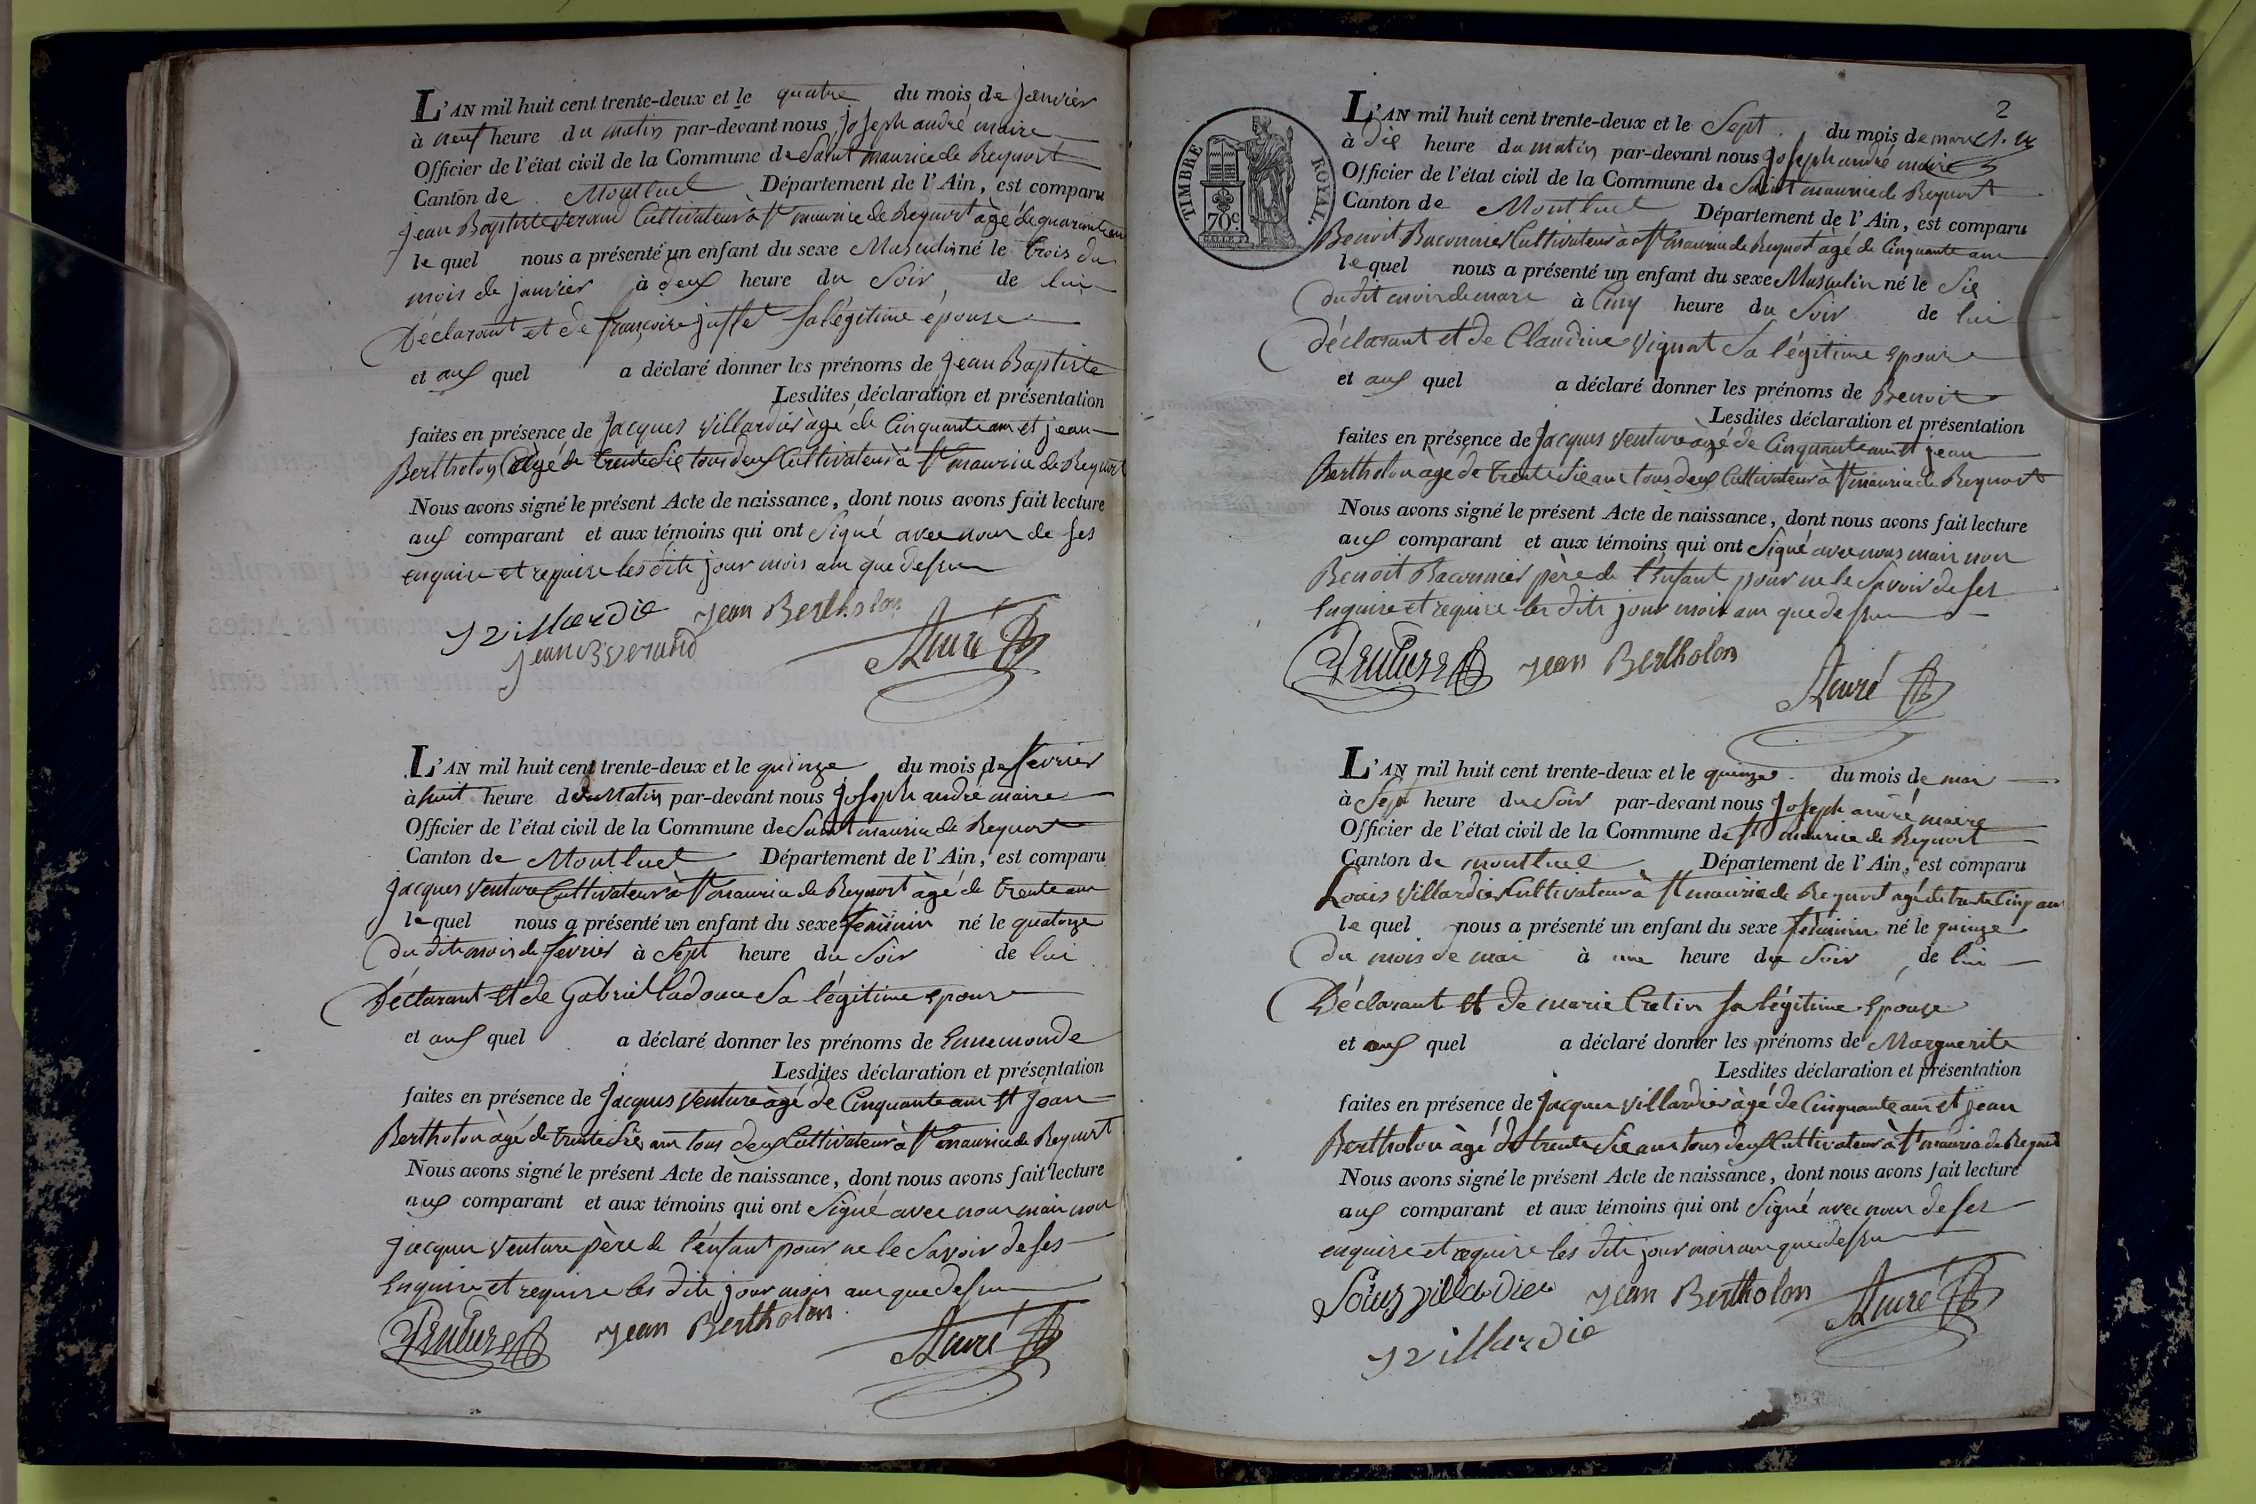 L'AN mil huit cent trente-deux et le quatre du mois de janvier
à neuf heure du matin par-devant nous joseph andré maire
Officier de l'état civil de la Commune de Saint maurice de Beynost
Canton de Montluel Département de l'Ain, est comparu
jean Baptiste Verand Cultivateur à St maurice de Beynost âgé de quarante ans
le quel nous a présenté un enfant du sexe Masculin né le trois du
mois de janvier à deux heure du Soir de lui
Déclarant et de françoise sa légitime épouse
et aux quel a déclaré donner les prénoms de jean Baptiste
Lesdites déclaration et présentation
faites en présence de jacques Villardier âgé de Cinquante ans et jean
Bertholon âgé de trente Six tous deux Cultivateur à St maurice de Beynost
Nous avons signé le présent Acte de naissance, dont nous avons fait lecture
aux comparant et aux témoins qui ont Signé avec nous de ses
enquire et require les dits jour mois an que dessus
J Villardie jean Bertholon
jean B verand André
L'AN mil huit cent trente-deux et le quinze du mois de fevrier
à huit heure du Matin par-devant nous joseph andré maire
Officier de l'état civil de la Commune de Saint maurice de Beynost
Canton de Montluel Département de l'Ain, est comparu
jacques Venture Cultivateur à St maurice de Beynost âgé de trente ans
le quel nous a présenté un enfant du sexe feminin né le quatorze
du dit mois de fevrier à Sept heure du Soir de lui
Déclarant et de Gabriel ladouce Sa légitime epouse
et aux quel a déclaré donner les prénoms de Ennemonde
Lesdites déclaration et présentation
faites en présence de jacques Venture âgé de Cinquante ans et jean
Bertholon âgé de trente Six ans tous deux Cultivateur à St maurice de Beynost
Nous avons signé le présent Acte de naissance, dont nous avons fait lecture
aux comparant et aux témoins qui ont Signé avec nous mais non
jacques Venture père de l'enfant pour ne le Savoir de ses
Enquire et require les dits jour mois an que dessus
Venture jean Bertholon André
2
TIMBRE ROYAL
70 c.
L'AN mil huit cent trente-deux et le Sept du mois de mars
à dix heure du matin par-devant nous joseph andré maire
Officier de l'état civil de la Commune de Saint maurice de Beynost
Canton de Montluel Département de l'Ain, est comparu
Benoit Baconnier Cultivateur à St maurice de Beynost âgé de Cinquante ans
le quel nous a présenté un enfant du sexe Masculin né le Six
du dit mois de mars à Cinq heure du Soir de lui
déclarant et de Claudine Vignat Sa légitime epouse
et aux quel a déclaré donner les prénoms de Benoit
Lesdites déclaration et présentation
faites en présence de jacques Venture âgé de Cinquante ans et jean
Bertholon âgé de trente Six ans tous deux Cultivateur à St maurice de Beynost
Nous avons signé le présent Acte de naissance, dont nous avons fait lecture
aux comparant et aux témoins qui ont Signé avec nous mais non
Benoit Baconnier père de l'Enfant pour ne le Savoir de ses
Enquire et require les dits jour mois an que dessus
Venture jean Bertholon
André
L'AN mil huit cent trente-deux et le quinze du mois de mai
à Sept heure du Soir par-devant nous joseph andré maire
Officier de l'état civil de la Commune de St maurice de Beynost
Canton de montluel Département de l'Ain, est comparu
Louis Villardier Cultivateur à St maurice de Beynost âgé de trente Cinq ans
le quel nous a présenté un enfant du sexe feminin né le quinze
du mois de mai à une heure du Soir de lui
Déclarant et de marie Cretin sa légitime Epouse
et aux quel a déclaré donner les prénoms de Marguerite
Lesdites déclaration et présentation
faites en présence de jacques Villardier âgé de Cinquante ans et jean
Bertholon âgé de trente Six ans tous deux Cultivateur à St maurice de Beynost
Nous avons signé le présent Acte de naissance, dont nous avons fait lecture
aux comparant et aux témoins qui ont Signé avec nous de ses
enquire et require les dits jour mois an que dessus
Louis villardier jean Bertholon André
J villardie